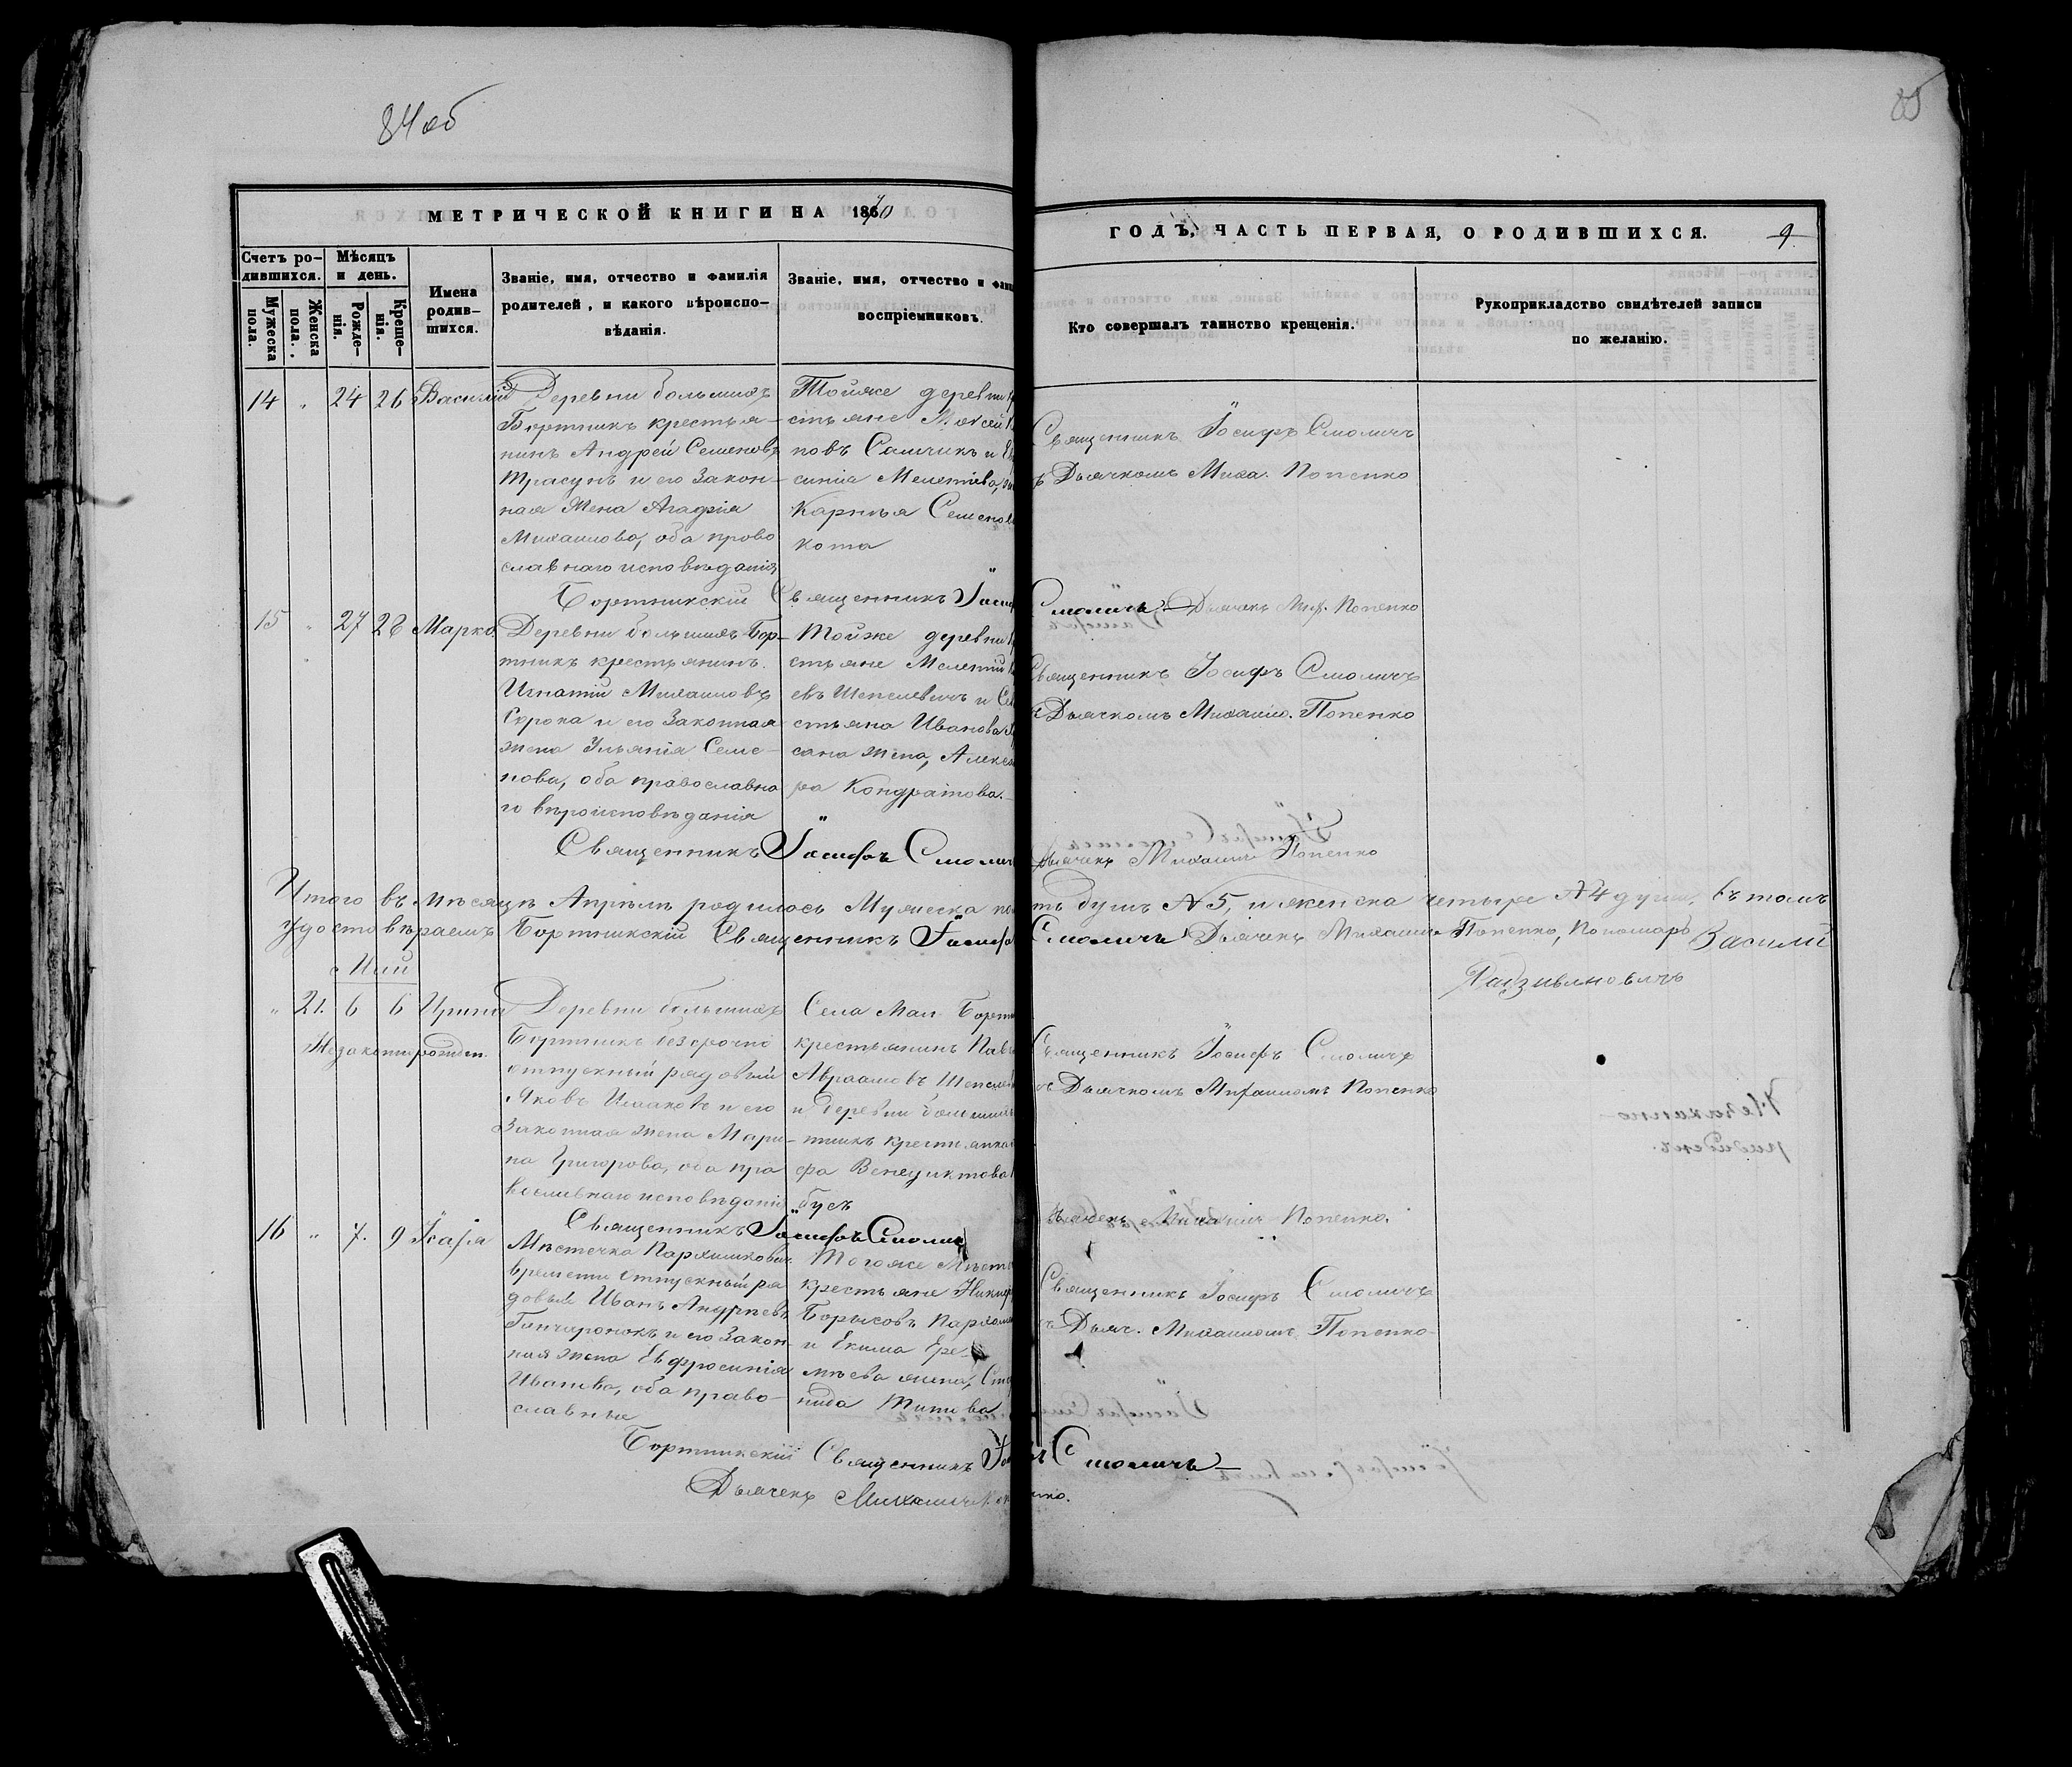 84 об
85
МЕТРИЧЕСКОЙ КНИГИ НА 1870
ГОДЪ, ЧАСТЬ ПЕРВАЯ, О РОДИВШИХСЯ.
9.
Счетъ ро-
дившихся.
Мужеска
пола.
Женска
пола.
Мѣсяцъ
и день.
Рожде-
нія.
Креще-
нія.
Имена
родив-
шихся.
Званіе, имя, отчество и фамилія
родителей, и какого вѣроиспо-
вѣданія.
Званіе, имя, отчество и фами
воспріемниковъ.
Кто совершалъ таинство крещенія.
Рукоприкладство свидѣтелей записи
по желанію.
14 " 24 26 Василій
Деревни большихъ
Бортникъ крестья-
нинъ Андрей Семеновъ
Трасунъ и его Закон-
ная Жена Агафія
Михаилова, оба право
славнаго исповѣданія
Тойже деревни
стьяне
новъ Самчикъ и
синія Мелетіева,
Карпъя Семенов
кота
Священникъ Іосифъ Смоличъ
Дьячкомъ Миха. Попенко
Бортникскій Священникъ Іосиф
Смоличъ. Дьячекъ Мих. Попенко
15 " 27 28 Марко
Деревни большихъ Бор-
тникъ крестьянинъ
Игнатій Михаиловъ
Сорока и его Законная
жена Ульянія Семе-
нова, оба православна
го вѣроисповѣданія
Тойже деревни
стьяне Мелетій
евъ Шепелевичъ и
стьяна Иванова
сана жена, Алекса
ра Кондратова.
Священникъ Іосифъ Смоличъ
Дьячкомъ Михаило. Попенко
Священникъ Іосифъ Смолич
Дьячекъ Михаилъ Попенко
Итого въ Мѣсяцѣ Апрѣлѣ родилось Мужеска по
ть душъ № 5, и женска четыре № 4 души. Въ томъ
удостовѣряемъ Бортникскій Священникъ Іосифъ
Смоличъ Дьячекъ Михаилъ Попенко, Пономарь Василій
Радзивановичъ
Май
" 21. 6 6 Ирина
Незаконнорожден.
Деревни большихъ
Бортникъ безсрочно
отпускный рядовый
Яковъ Исааковъ и его
Законная жена Мари-
на Григорова, оба пра
вославнаго исповѣданія
Села Мал Бортн
крестьянинъ Пав
Авраамовъ Шепеле
и деревни большихъ
тникъ крестьянка
фа Бенедиктова
бусъ
Священникъ Іосифъ Смоличъ
Дьячкомъ Михаиломъ Попенко
Священникъ Іосифъ Смолич
Дьячекъ Михаилъ Попенко.
16 " 7. 9 Исаія
Мѣстечка Пархимковичъ
времени отпускный ря
довый Иванъ Андреевъ
Гончаронокъ и его Закон
ная жена Евфросинія
Иванова, оба право-
славные
Тогоже Мѣст
крестьяне Никиф
Борысовъ Пархом
и Екима Ере-
мѣева жена, Сте
нида Титова
Священникъ Іосифъ Смоличъ
Дьяч. Михаиломъ Попенко
Бортникскій Священникъ Іо
Смоличъ
Дьячекъ Михаилъ
нко.